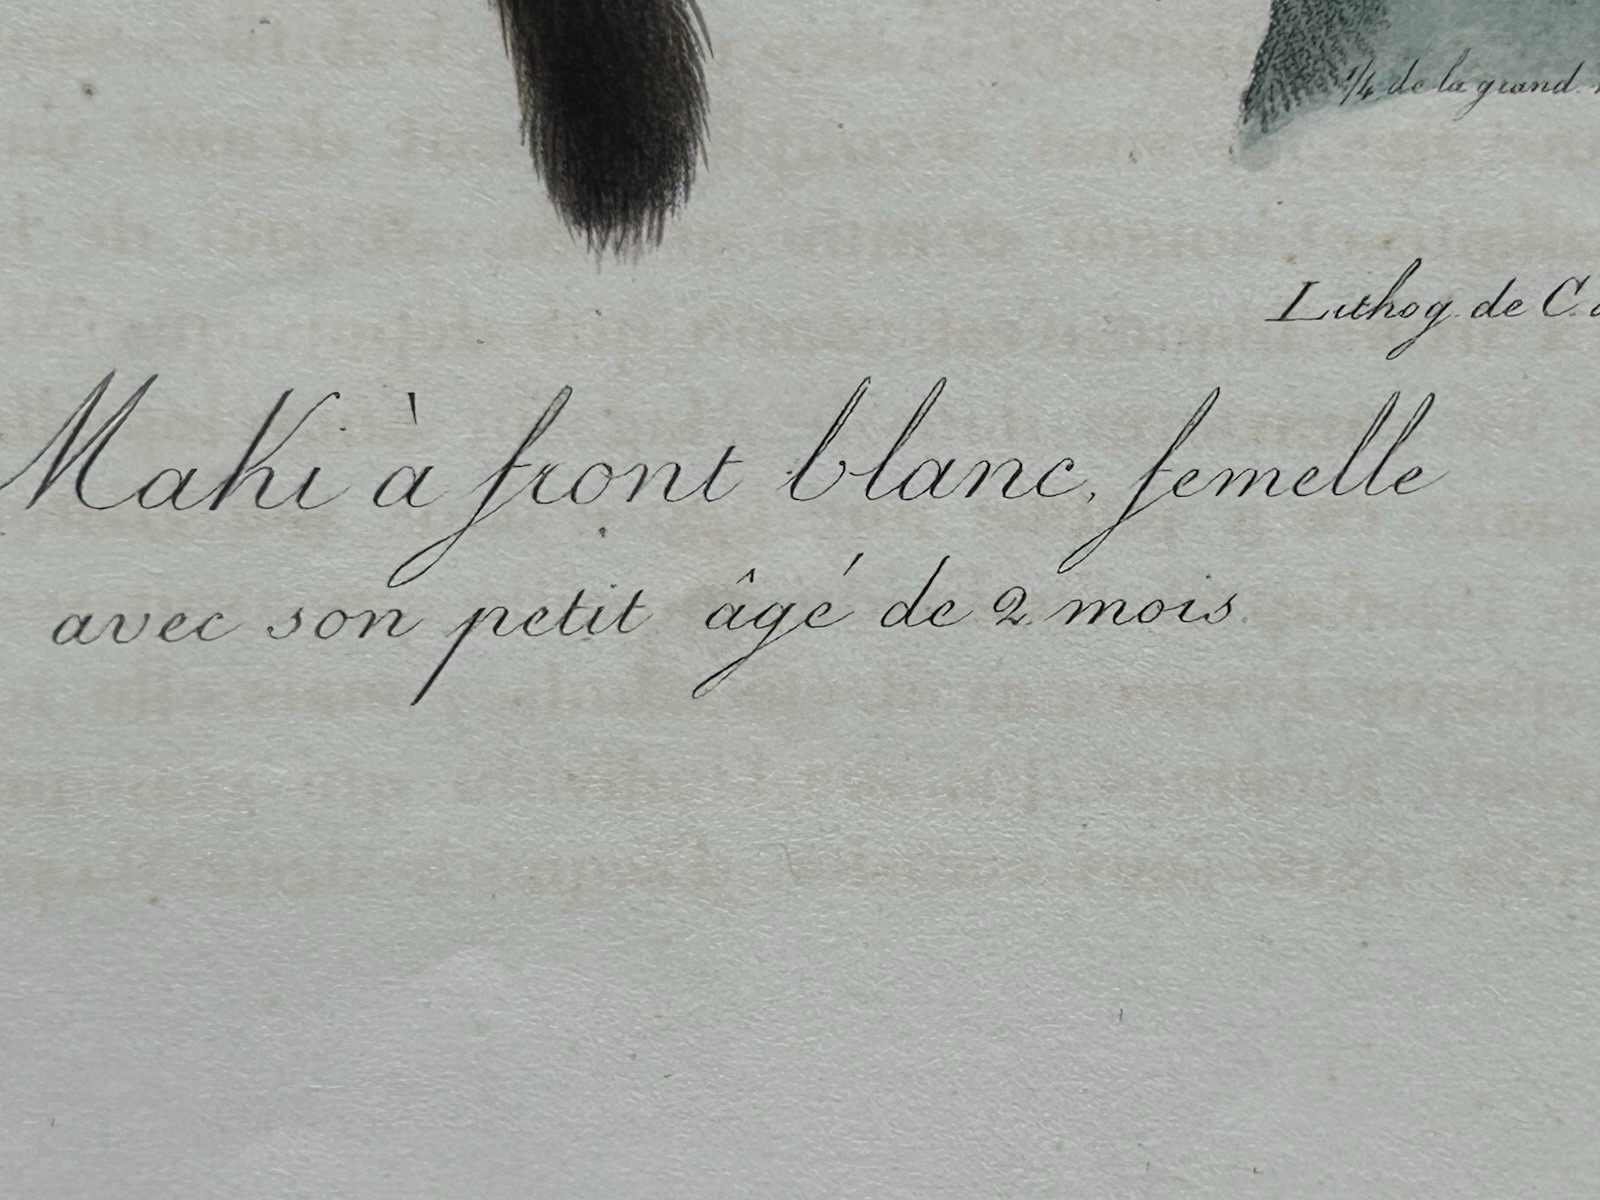 1/4 de la grand.
Lithog. de C.
Maki à front blanc, femelle
avec son petit âgé de 2 mois.